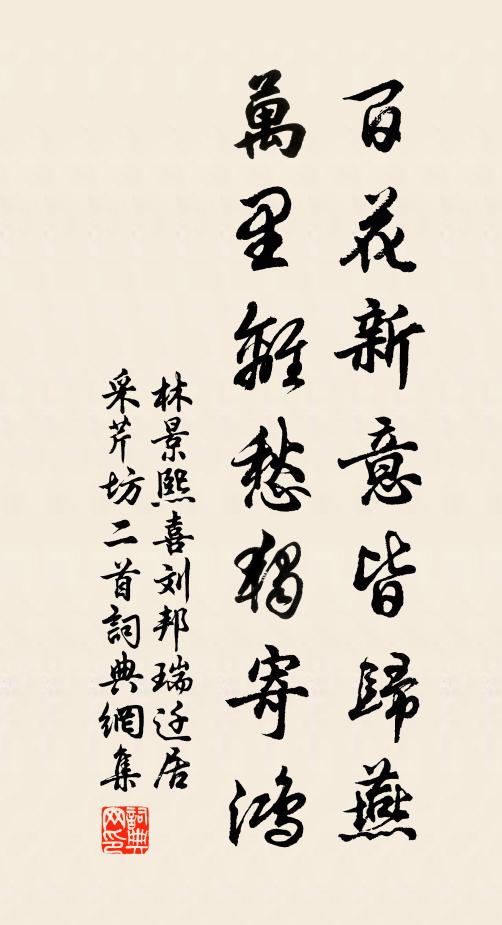 百花新意皆歸燕
萬里離愁獨寄鴻
林景熙喜刘邦瑞迁居
采芹坊二首詞典網集
詞典
网印